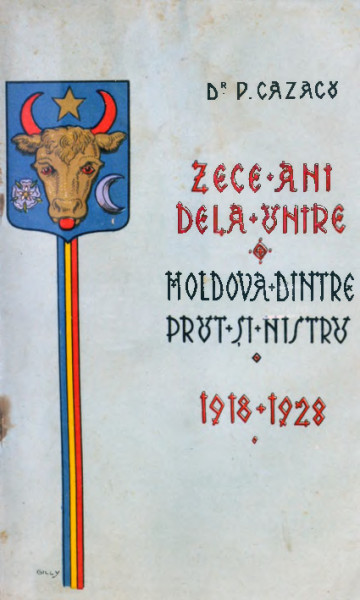 Dr P. CAZACU
ZECE ANI
DELA UNIRE
MOLDOVA DINTRE
PRUT ȘI NISTRU
1918 + 1928
GILLY